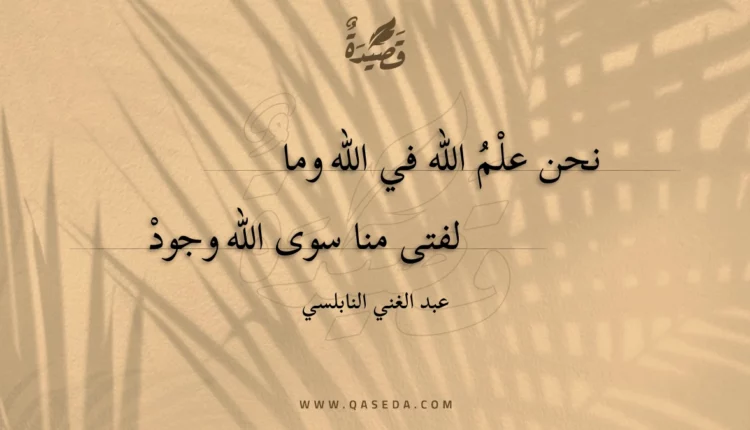 قَصِيْدَةٌ
نحن علْمُ الله في الله وما
لفتى منا سوى الله وجودْ
عبد الغني النابلسي
WWW.QASEDA.COM